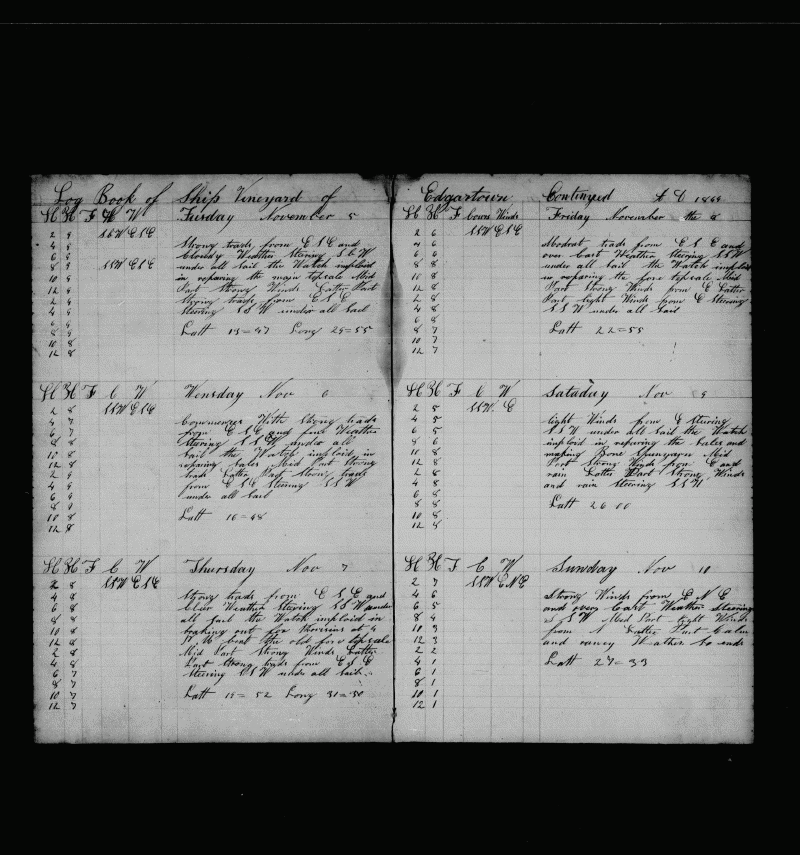 Log Book of Ship Vineyard of
H K F C W Tusday November 5
2 9 SbW ESE
4 8 Strong trads from E S E and
6 8 cloudy Weather Stering S b W
8 9 SSW ESE under all Sail the Watch imploid
10 8 in reparing the main topsale Mid
12 8 Part Strong Winds Latter Part
2 9 Strong trads from E S E
4 9 Stering S S W under all Sail
6 9
8 9 Latt 13=47 Long 29=55
10 8
12 8
H K F C W Wensday Nov 6
2 8 SSW ESE
4 7 Commences With Strong trads
6 7 from E S E and fine Weather
8 8 Stering S S W under all
10 8 Sail the Watch imploid in
12 8 reparing Sales Mid Part Strong
2 9 trads Latter Part Strong trads
4 9 from E S E Stering S S W
6 9 under all Sail
8 9
10 8 Latt 16=48
12 8
H K F C W Thursday Nov 7
2 8 SSW ESE
4 8 Strong trads from E S E and
6 8 Weather Stering S S W under
8 8 all Sail the Watch imploid in
10 8 braking out for at 4
12 8 P. M bent the old fore topsale
2 8 Mid Part Strong Winds Latter
4 8 Part Strong trads from E S E
6 7 Stering S S W under all Sail
8 7
10 7 Latt 19=52 Long 31=30
12 7
Edgartown Continyed 1844
H K F Cours Winds Friday November the 8
2 6 SSW ESE
4 6 Moderat trads from E S E and
6 6 over Cast Weather Stering S S W
8 8 under all Sail the Watch imploid
10 8 in reparing the fore topsale Mid
12 8 Part Strong Winds from E Latter
2 8 Part light Winds from E Stering
4 8 S S W under all Sail
6 8
8 7 Latt 22=55
10 7
12 7
H K F C W Sataday Nov 9
2 5 SSW. E
4 5 light Winds from E Stering
6 5 S S W under all Sail the Watch
8 6 imploid in reparing the Sales and
10 8 making Spunyarn Mid
12 8 Part Strong Winds from E and
2 8 rain Latter Part Strong Winds
4 8 and rain Stering S S W
6 8
8 8 Latt 26 00
10 8
12 8
H K F C W Sunday Nov 10
2 7 SSW ENE
4 6 Strong Winds from E N E
6 5 and overy Cast Weather Stering
8 4 S S W Mid Part light Winds
10 3 from N Latter Part Calm
12 3 and Weather So ends
2 2
4 1 Latt 27=33
6 1
8 1
10 1
12 1